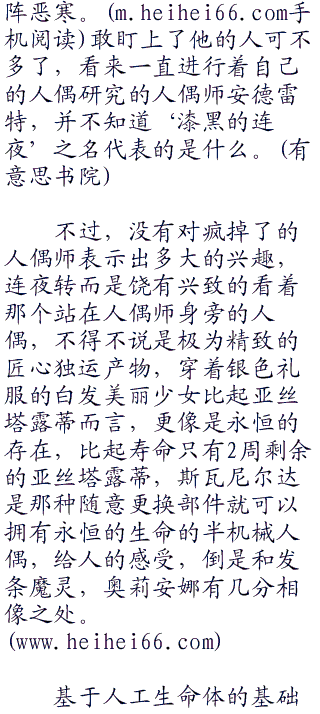 阵恶寒。(m.heihei66.com手
机阅读)敢盯上了他的人可不
多了，看来一直进行着自己
的人偶研究的人偶师安德雷
特，并不知道‘漆黑的连
夜’之名代表的是什么。(有
意思书院)
不过，没有对疯掉了的
人偶师表示出多大的兴趣，
连夜转而是饶有兴致的看着
那个站在人偶师身旁的人
偶，不得不说是极为精致的
匠心独运产物，穿着银色礼
服的白发美丽少女比起亚丝
塔露蒂而言，更像是永恒的
存在，比起寿命只有2周剩余
的亚丝塔露蒂，斯瓦尼尔达
是那种随意更换部件就可以
拥有永恒的生命的半机械人
偶，给人的感受，倒是和发
条魔灵，奥莉安娜有几分相
像之处。
(www.heihei66.com)
基于人工生命体的基础